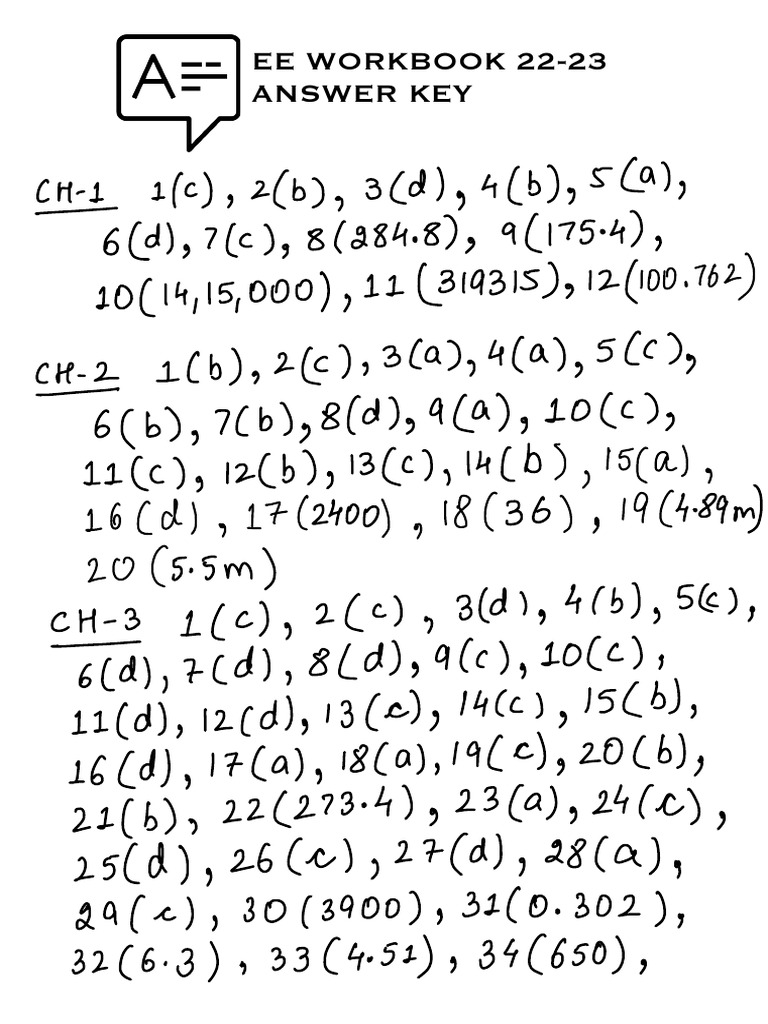 A
EE WORKBOOK 22-23
ANSWER KEY
CH-1 1(c), 2(b), 3(d), 4(b), 5(a),
6(d), 7(c), 8(284.8), 9(175.4),
10(14,15,000), 11(319315), 12(100.762)
CH-2 1(b), 2(c), 3(a), 4(a), 5(c),
6(b), 7(b), 8(d), 9(a), 10(c),
11(c), 12(b), 13(c), 14(b), 15(a),
16(d), 17(2400), 18(36), 19(4.89m)
20(5.5m)
CH-3 1(c), 2(c), 3(d), 4(b), 5(c),
6(d), 7(d), 8(d), 9(c), 10(c),
11(d), 12(d), 13(c), 14(c), 15(b),
16(d), 17(a), 18(a), 19(c), 20(b),
21(b), 22(273.4), 23(a), 24(c),
25(d), 26(c), 27(d), 28(a),
29(c), 30(3900), 31(0.302),
32(6.3), 33(4.51), 34(650),